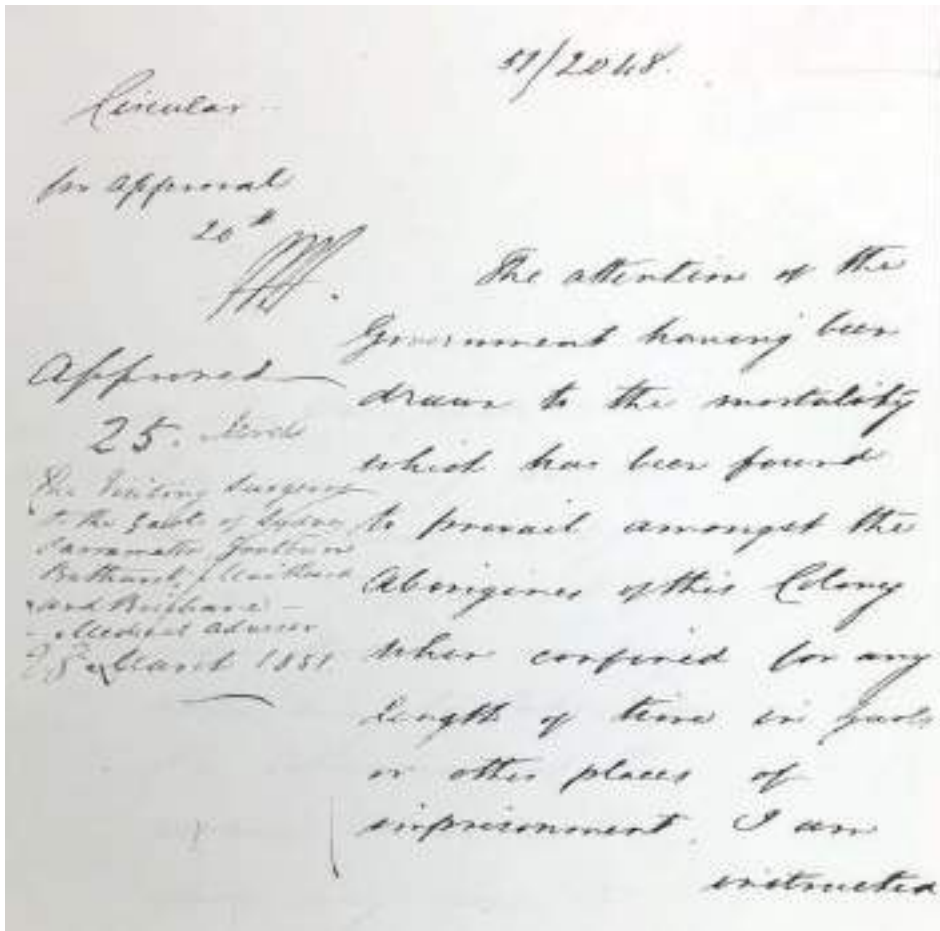 51/2048.
Circular
for approval
20th
Approved
25. March
The Visiting Surgeons
to the Gaols of Sydney
Parramatta Goulburn
Bathurst, Maitland
and Brisbane –
Medical Adviser
28 March 1851.
The attention of the
Government having been
drawn to the mortality
which has been found
to prevail amongst the
Aborigines of this Colony
when confined for any
length of time in gaols
or other places of
imprisonment, I am
instructed